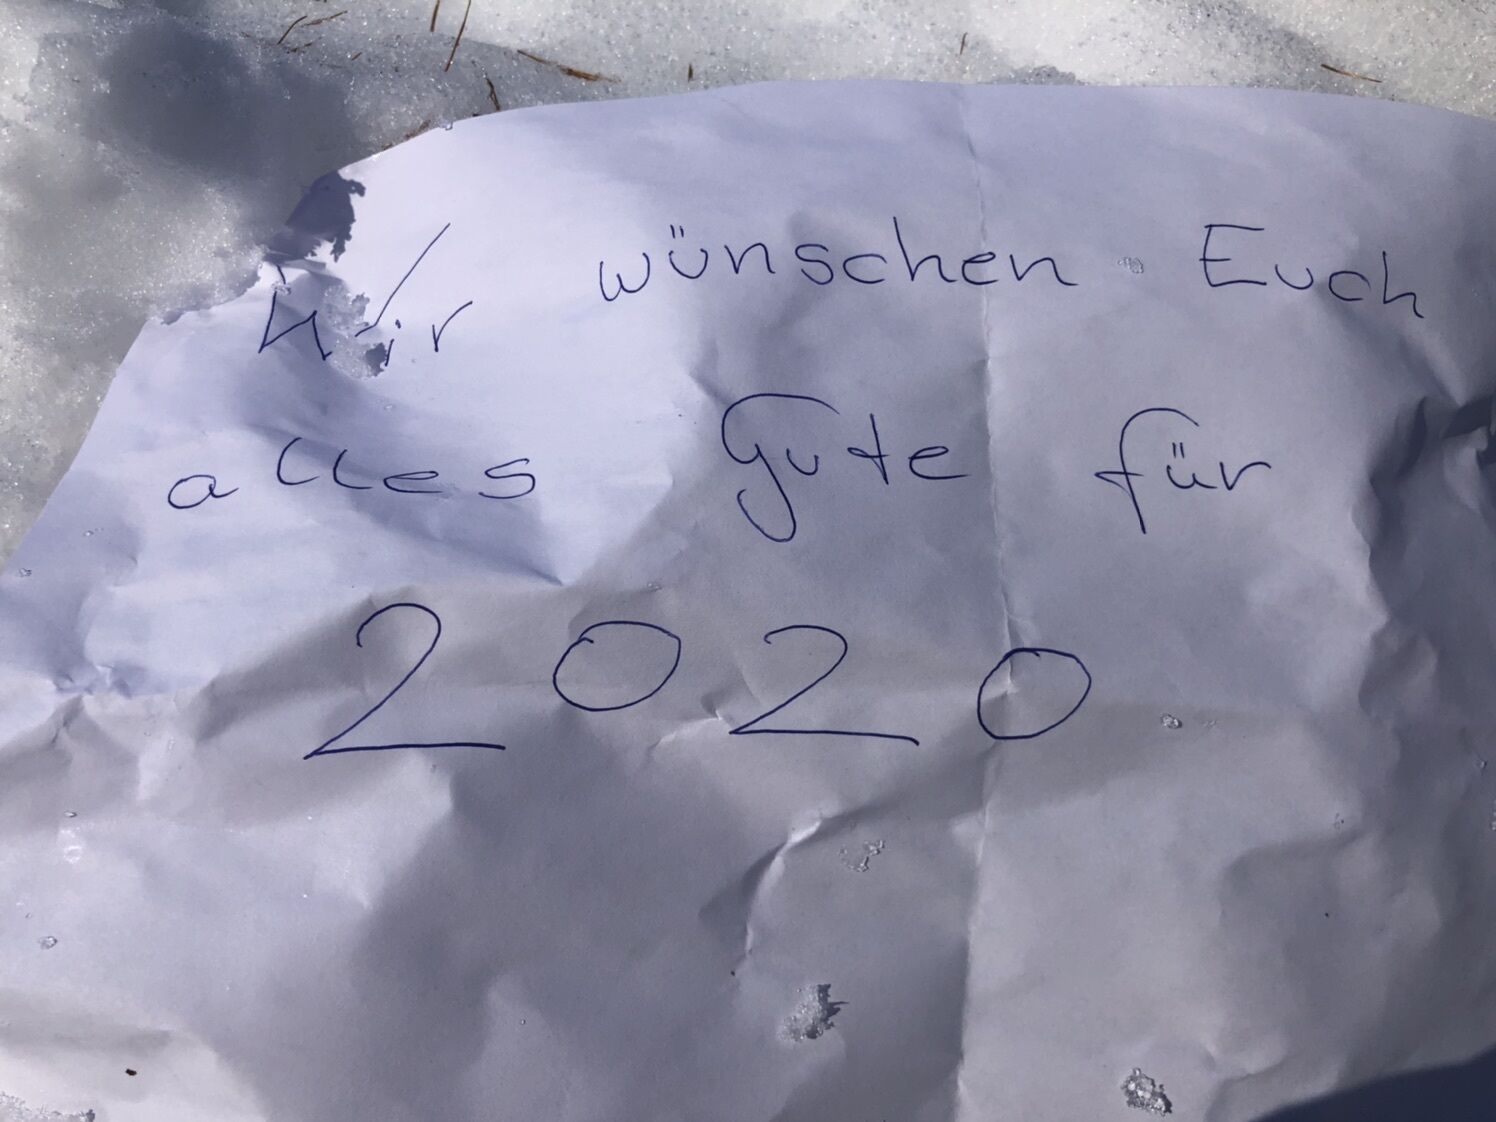 Wir wünschen Euch
alles Gute für
2020